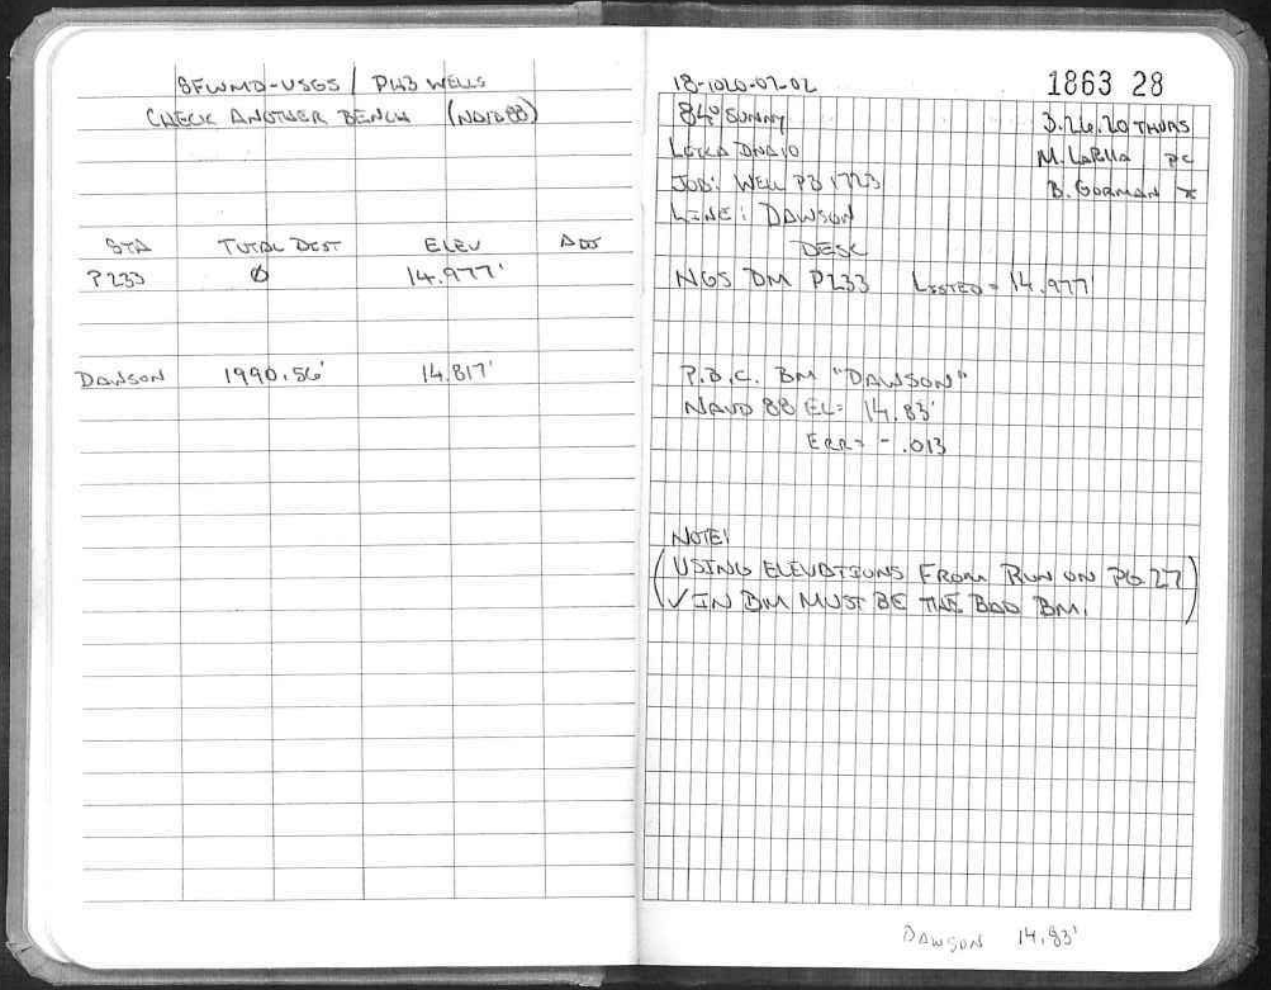 SFWMD-USGS / PH3 WELLS
CHECK ANOTHER BENCH (NAVD88)
STA TOTAL DIST ELEV ADJ
P233 Ø 14.977'
DAWSON 1990.56' 14.817'
18-1020-02-02
1863 28
84° SUNNY
3.26.20 THURS
LEICA DNA10
M. LARHA PC
JOB: WELL PB 1723
B. GORMAN
LINE: DAWSON
DESC
NGS BM P233 LISTED = 14.977'
P.B.C. BM "DAWSON"
NAVD 88 EL= 14.83'
ERR= -.013
NOTE!
(USING ELEVATIONS FROM RUN ON PG 27)
(✓ IN BM MUST BE THE BAD BM.)
DAWSON 14.83'